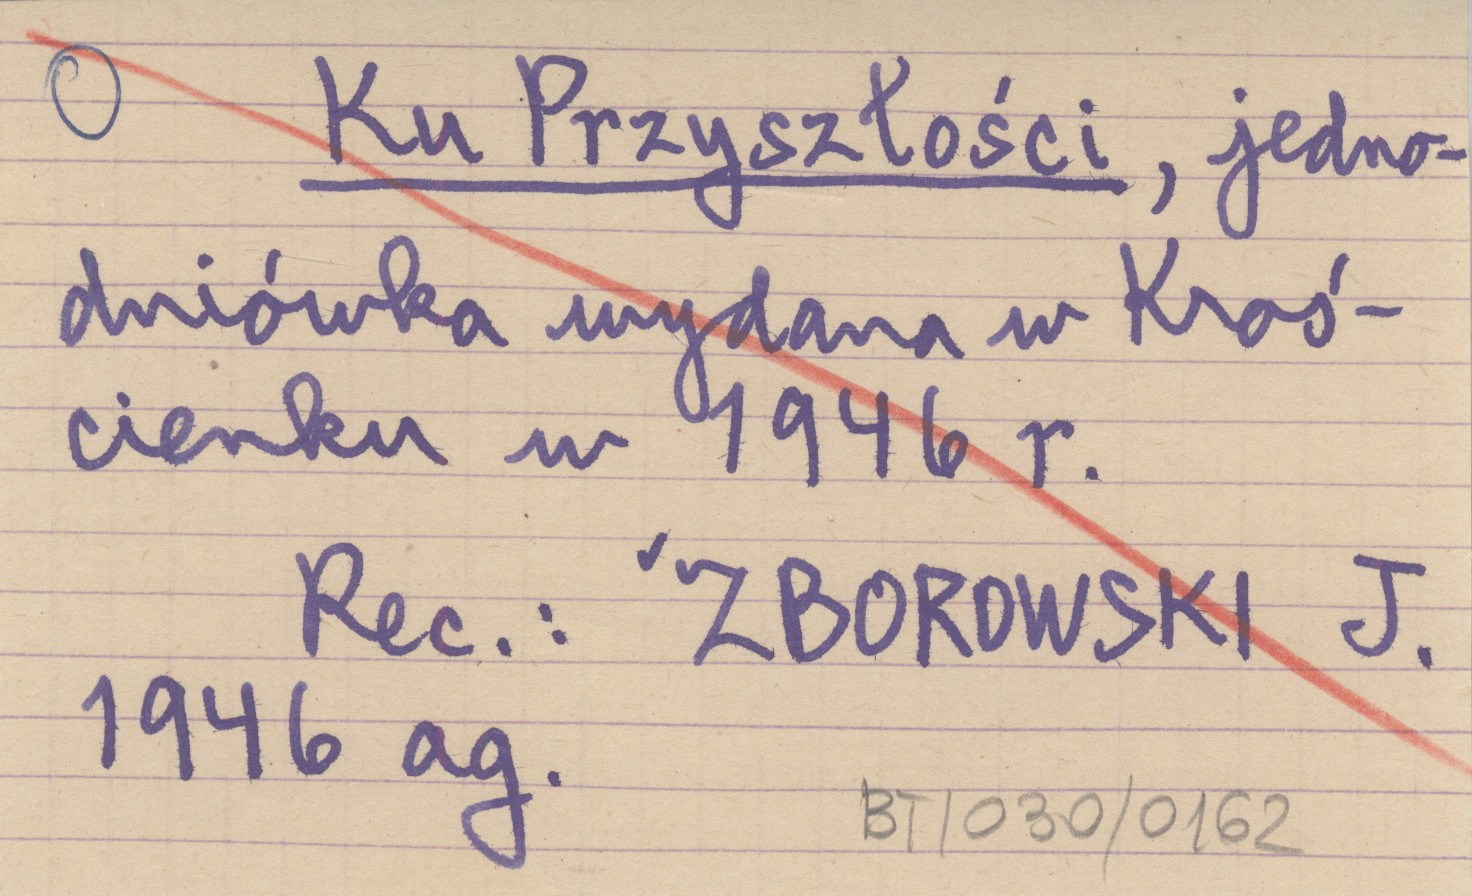 Ku Przyszłości, jedno-
dniówka wydana w Kroś-
cienku w 1946 r.
Rec.: ZBOROWSKI J.
1946 ag.
BT/030/0162